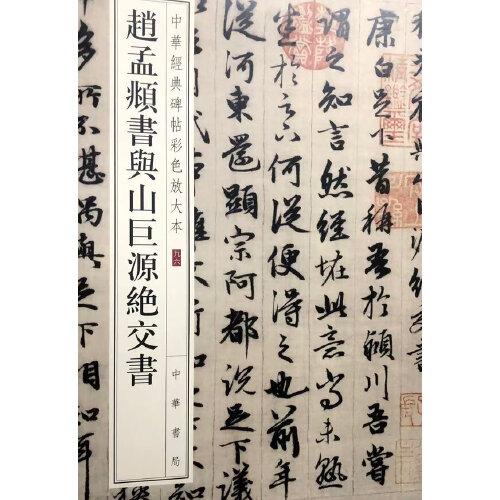 趙孟頫書與山巨源絶交書
中華經典碑帖彩色放大本
九六
中華書局
康白足下昔稱吾於潁川吾嘗
謂之知言然經怪此意尚未熟
悉於足下何從便得之也前年
從河東還顯宗阿都說足下議
多所不堪偶與足下相知耳